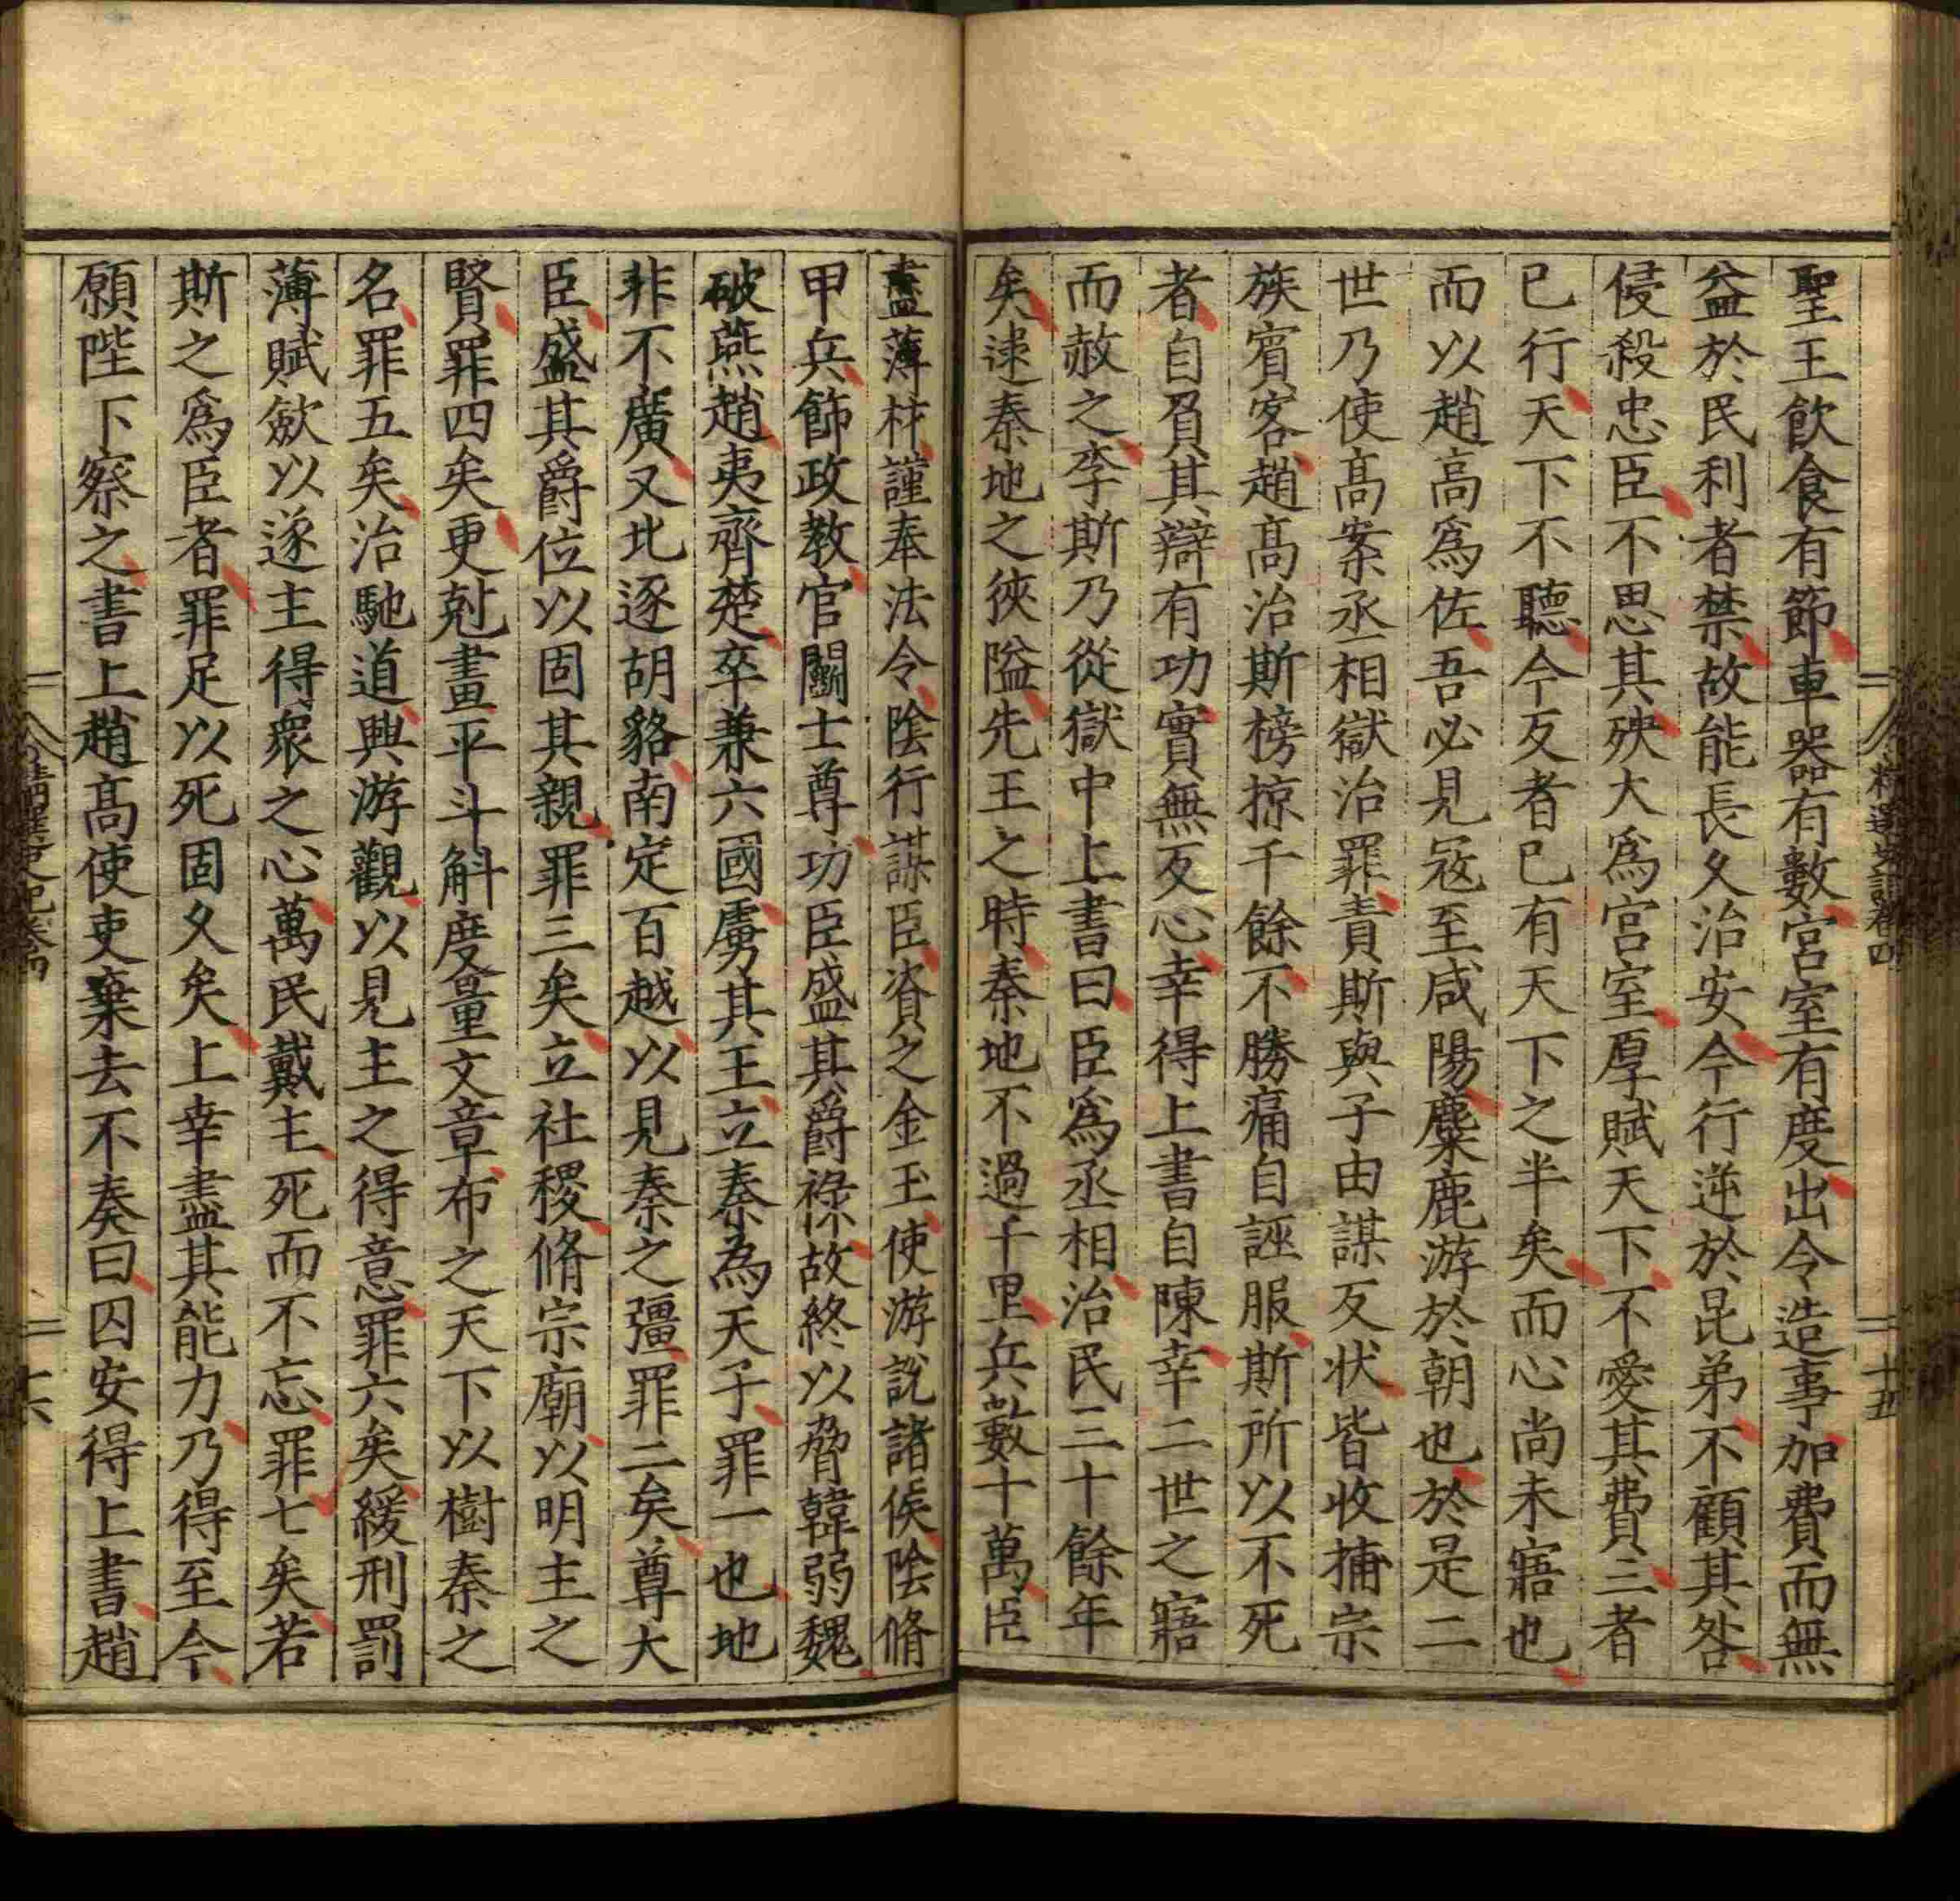 聖王飲食有節車器有數宮室有度出令造事加費而無
益於民利者禁故能長久治安今行逆於昆弟不顧其咎
侵殺忠臣不思其殃大爲宮室厚賦天下不愛其費三者
已行天下不聽今反者已有天下之半矣而心尚未寤也
而以趙高爲佐吾必見寇至咸陽麋鹿游於朝也於是二
世乃使高案丞相獄治罪責斯與子由謀反状皆收捕宗
族賓客趙高治斯榜掠千餘不勝痛自誣服斯所以不死
者自負其辯有功實無反心幸得上書自陳幸二世之寤
而赦之李斯乃從獄中上書曰臣爲丞相治民三十餘年
矣逮秦地之狹隘先王之時秦地不過千里兵數十萬臣
盡薄材謹奉法令陰行謀臣資之金玉使游說諸侯陰脩
甲兵飾政教官鬭士尊功臣盛其爵祿故終以脅韓弱魏
破燕趙夷齊楚卒兼六國虜其王立秦為天子罪一也地
非不廣又北逐胡貉南定百越以見秦之彊罪二矣尊大
臣盛其爵位以固其親罪三矣立社稷脩宗廟以明主之
賢罪四矣更尅畫平斗斛度量文章布之天下以樹秦之
名罪五矣治馳道興游觀以見主之得意罪六矣緩刑罰
薄賦斂以遂主得衆之心萬民戴主死而不忘罪七矣若
斯之爲臣者罪足以死固久矣上幸盡其能力乃得至今
願陛下察之書上趙高使吏棄去不奏曰囚安得上書趙
精選史記卷四
十五
精選史記卷四
十六